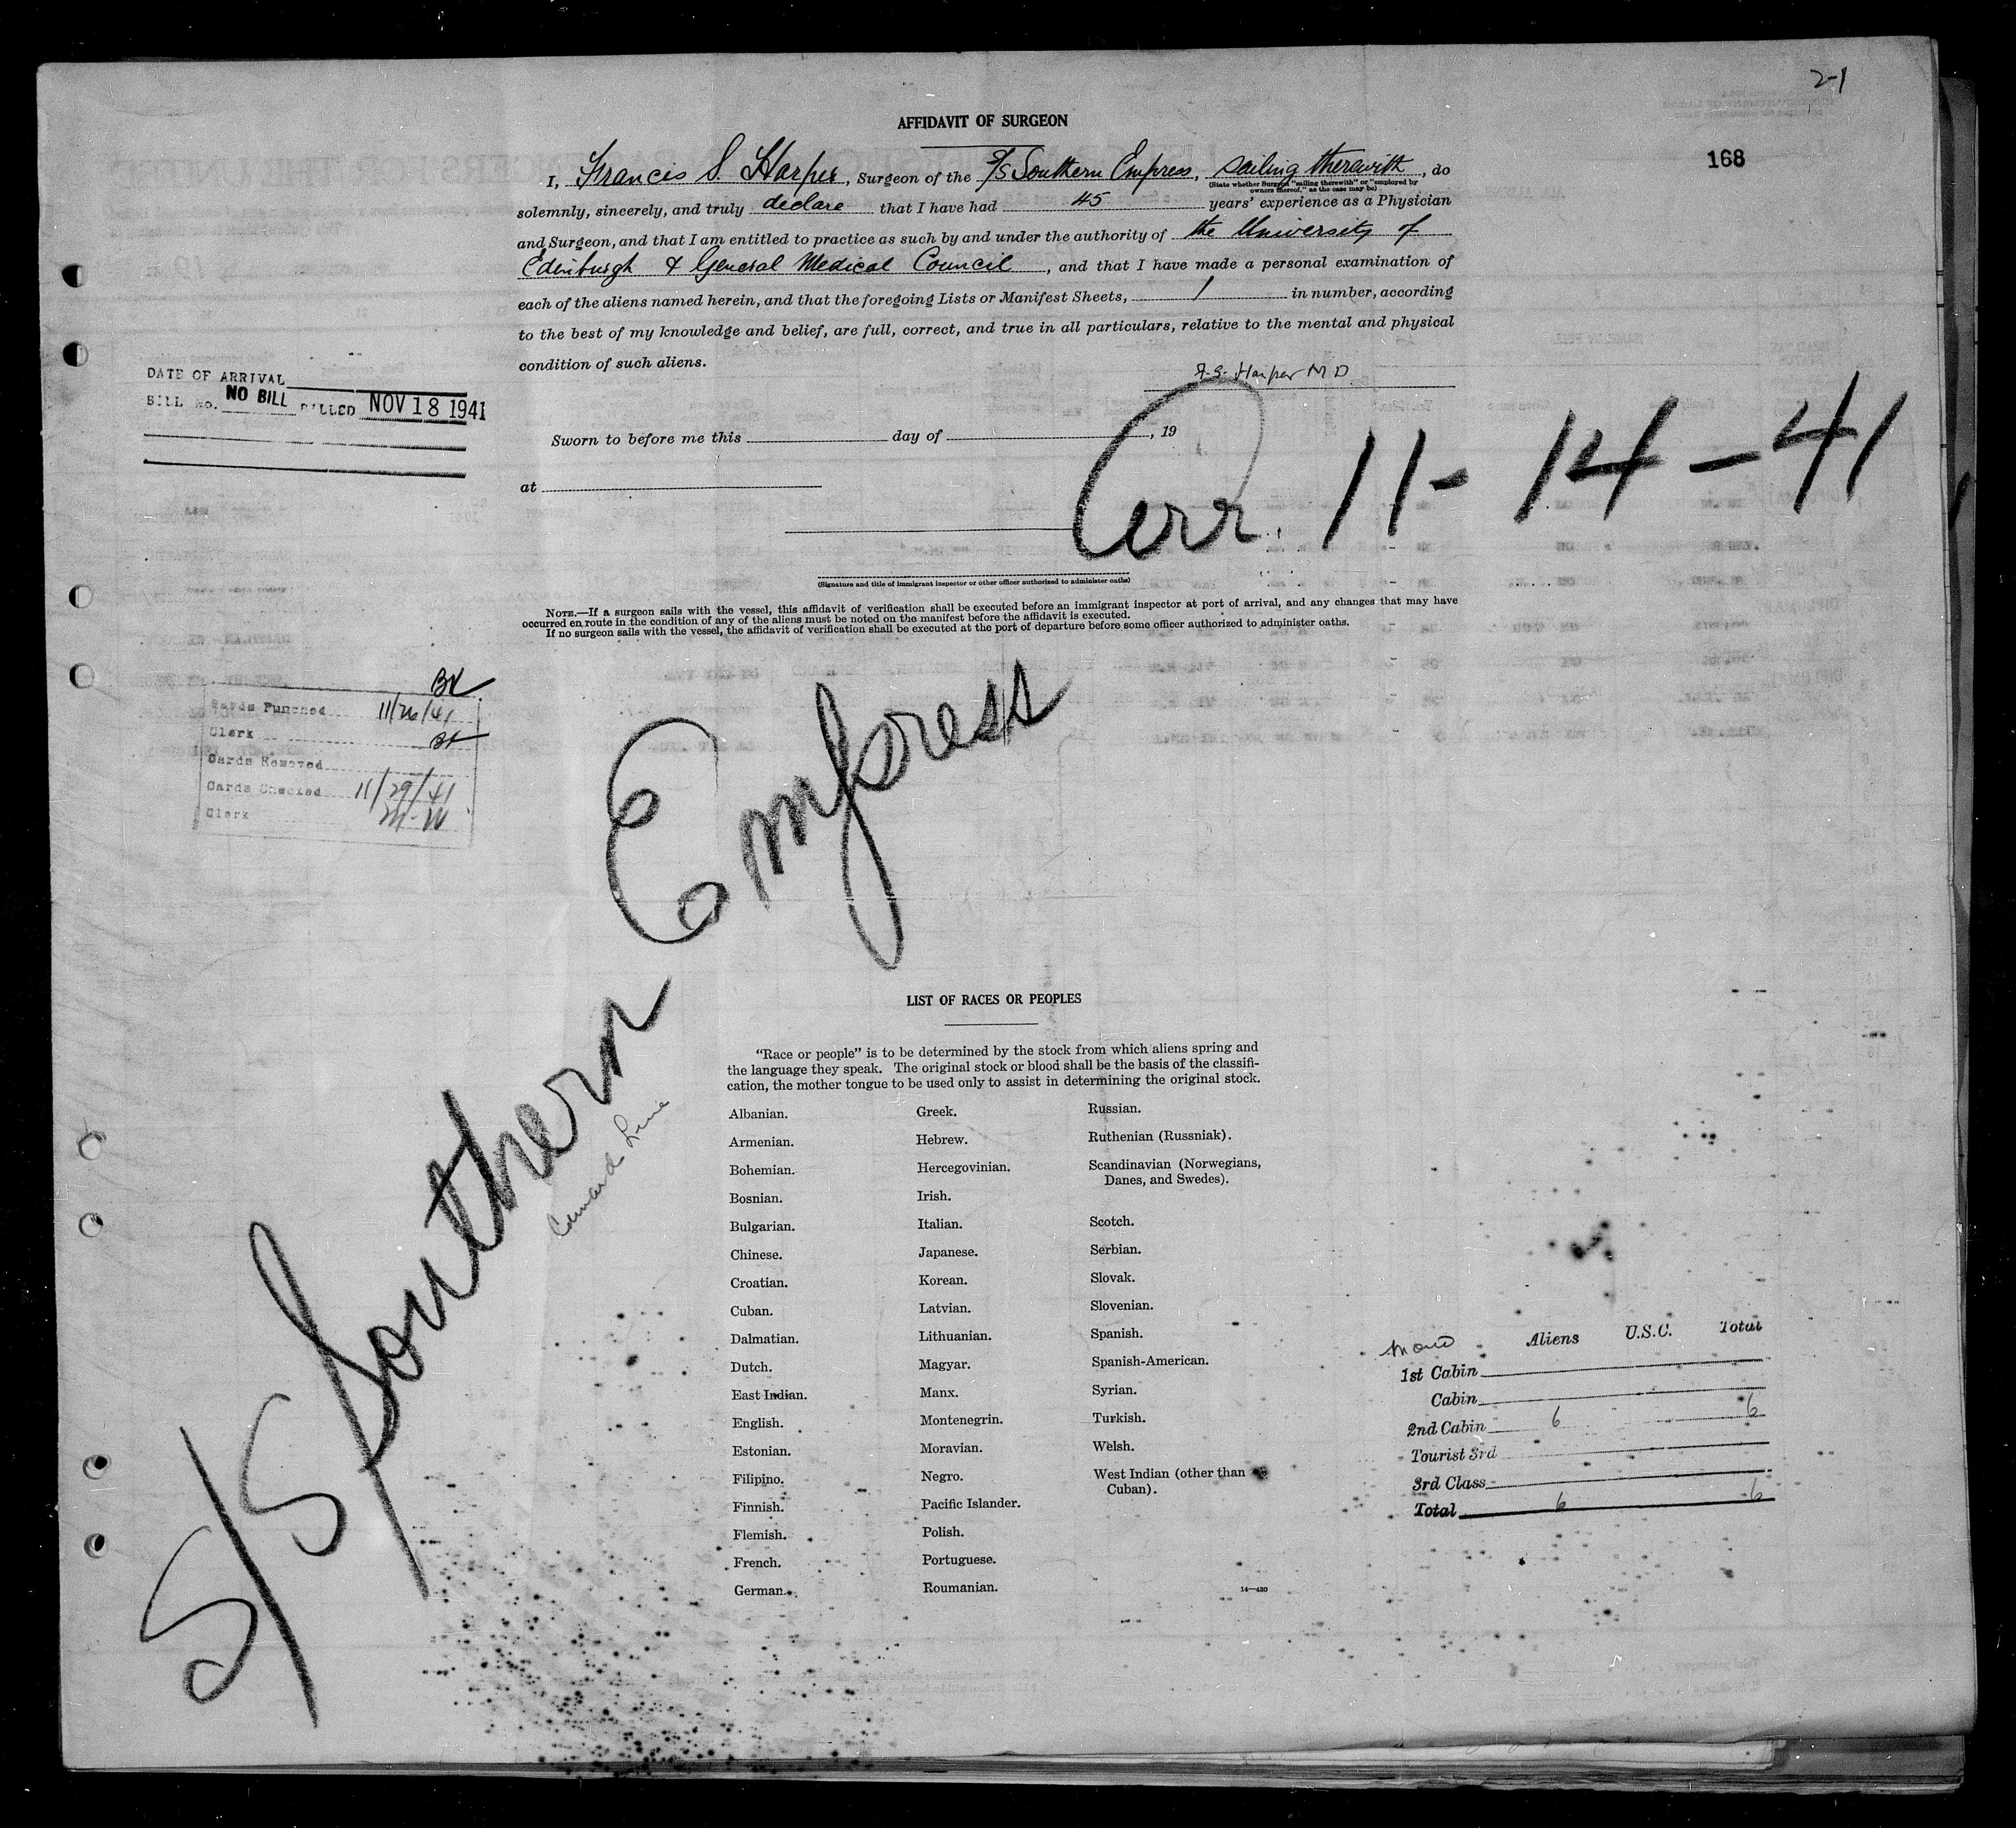 2-1
168
AFFIDAVIT OF SURGEON
I, Francis S. Harper, Surgeon of the S/S Southern Empress, sailing therewith, do
(State whether Surgeon "sailing therewith" or "employed by
owners thereof," as the case may be)
solemnly, sincerely, and truly declare that I have had 45 years' experience as a Physician
and Surgeon, and that I am entitled to practice as such by and under the authority of the University of
Edinburgh & General Medical Council, and that I have made a personal examination of
each of the aliens named herein, and that the foregoing Lists or Manifest Sheets, 1 in number, according
to the best of my knowledge and belief, are full, correct, and true in all particulars, relative to the mental and physical
condition of such aliens.
F.S. Harper M D
DATE OF ARRIVAL
BILL No. NO BILL BILLED NOV 18 1941
Sworn to before me this day of , 19
at
Arr. 11-14-41
(Signature and title of immigrant inspector or other officer authorized to administer oaths)
NOTE.—If a surgeon sails with the vessel, this affidavit of verification shall be executed before an immigrant inspector at port of arrival, and any changes that may have
occurred en route in the condition of any of the aliens must be noted on the manifest before the affidavit is executed.
If no surgeon sails with the vessel, the affidavit of verification shall be executed at the port of departure before some officer authorized to administer oaths.
Cards Punched 11/26/41
Clerk
Cards Removed
Cards Checked 11/29/41
Clerk
S/S Southern Empress
Cunard Line
LIST OF RACES OR PEOPLES
"Race or people" is to be determined by the stock from which aliens spring and
the language they speak. The original stock or blood shall be the basis of the classifi-
cation, the mother tongue to be used only to assist in determining the original stock.
Albanian.
Armenian.
Bohemian.
Bosnian.
Bulgarian.
Chinese.
Croatian.
Cuban.
Dalmatian.
Dutch.
East Indian.
English.
Estonian.
Filipino.
Finnish.
Flemish.
French.
German.
Greek.
Hebrew.
Hercegovinian.
Irish.
Italian.
Japanese.
Korean.
Latvian.
Lithuanian.
Magyar.
Manx.
Montenegrin.
Moravian.
Negro.
Pacific Islander.
Polish.
Portuguese.
Roumanian.
Russian.
Ruthenian (Russniak).
Scandinavian (Norwegians,
Danes, and Swedes).
Scotch.
Serbian.
Slovak.
Slovenian.
Spanish.
Spanish-American.
Syrian.
Turkish.
Welsh.
West Indian (other than
Cuban).
14—430
Aliens U.S.C. Total
1st Cabin
Cabin
2nd Cabin 6 6
Tourist 3rd
3rd Class
Total 6 6